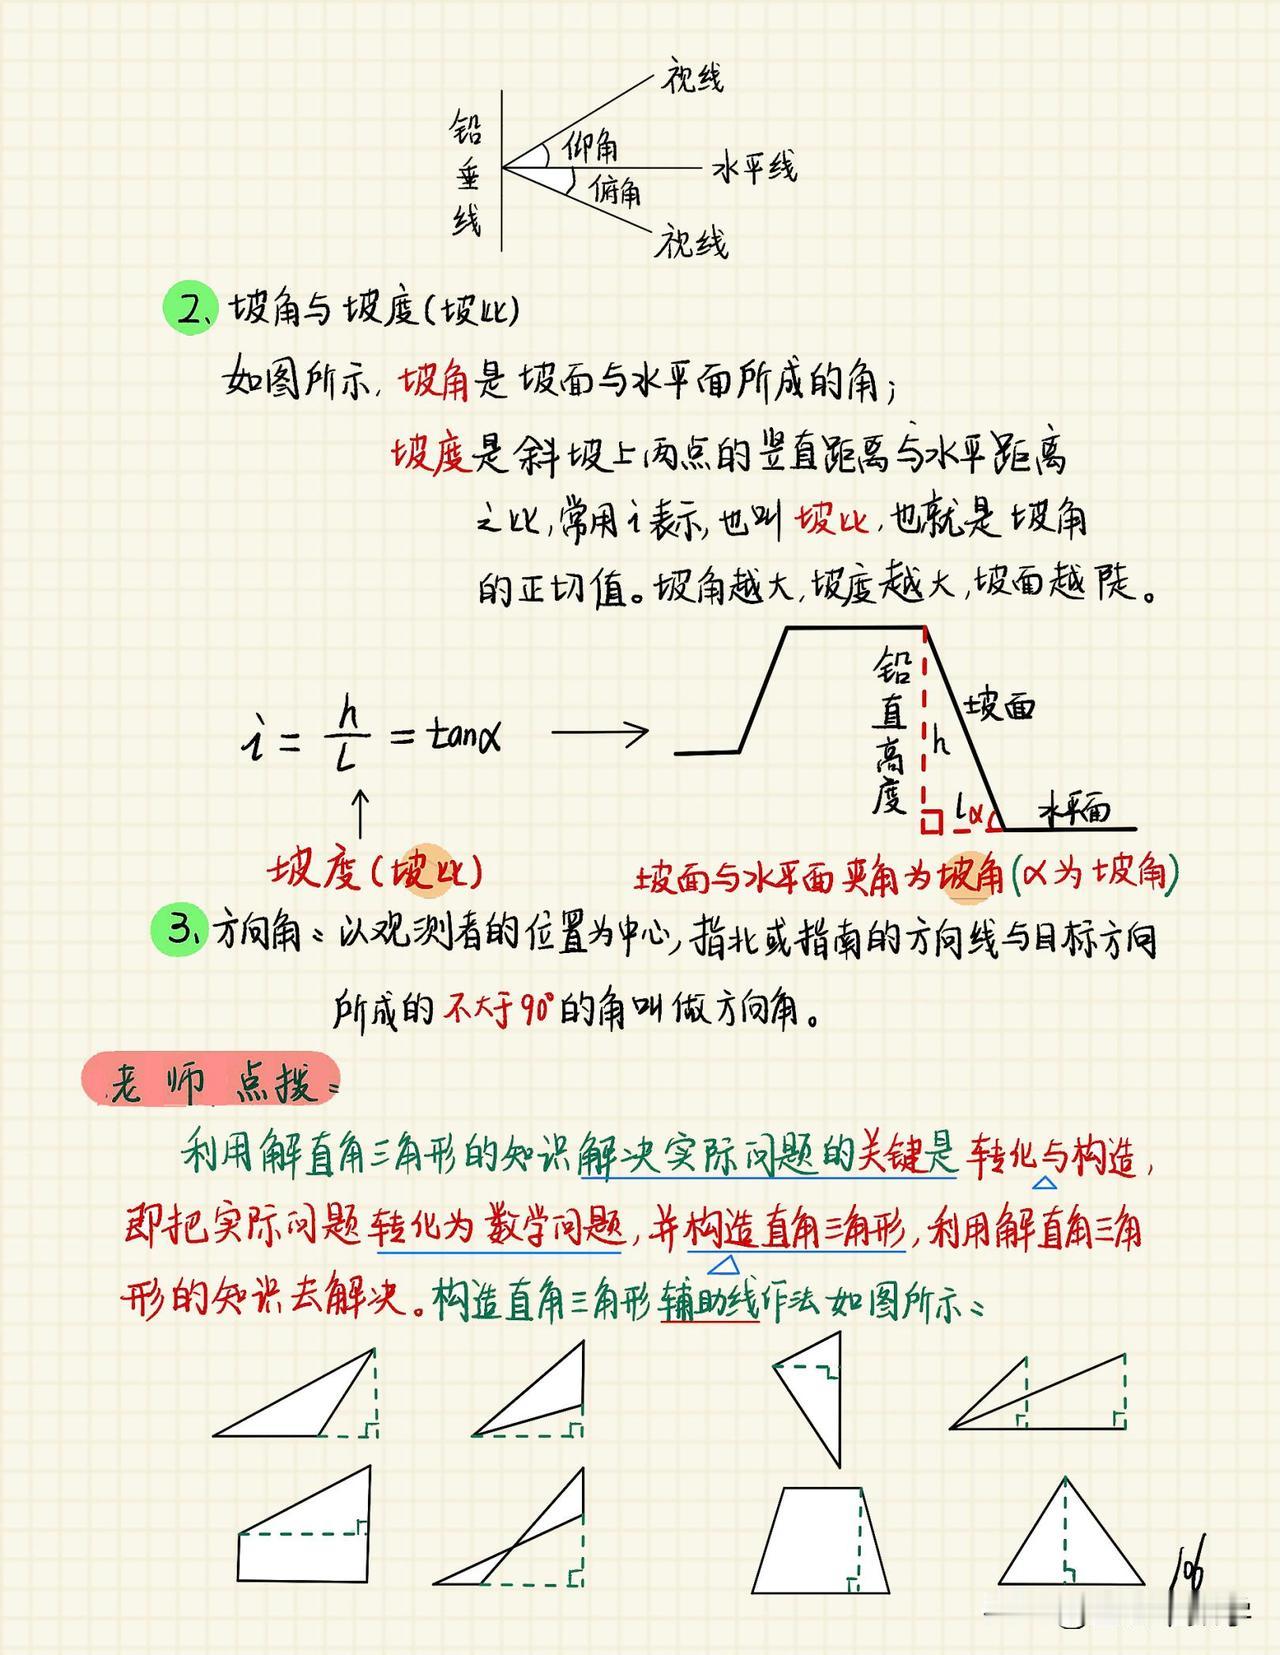 视线
铅垂线
仰角
水平线
俯角
视线
2、坡角与坡度(坡比)
如图所示,坡角是坡面与水平面所成的角;
坡度是斜坡上两点的竖直距离与水平距离
之比,常用i表示,也叫坡比,也就是坡角
的正切值。坡角越大,坡度越大,坡面越陡。
铅直高度
坡面
h
i = h/L = tanα
l
α
水平面
坡度(坡比)
坡面与水平面夹角为坡角(α为坡角)
3、方向角:以观测者的位置为中心,指北或指南的方向线与目标方向
所成的不大于90°的角叫做方向角。
老师点拨:
利用解直角三角形的知识解决实际问题的关键是转化与构造,
即把实际问题转化为数学问题,并构造直角三角形,利用解直角三角
形的知识去解决。构造直角三角形辅助线作法如图所示:
106